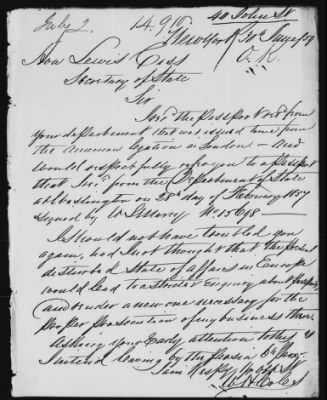 40 John St
July 2. 14.910.
New York 30th June /59
O.K.
Hon Lewis Cass
Secretary of State
Sir
the Passport from
your department that was issued to me from
the American Legation in London — and
would respectfully refer you to a passport
that I recd from the Department of State
at Washington on 28th day of February 1857
signed by W L Marcy No 15698 —
I should not have troubled you
again, had I not thought that the present
disturbed State of affairs in Europe
would lead to a strict Enquiry about Passports,
and render a new one necessary for the
proper prosecution of my business there.
Asking your Early attention to this as
I intend leaving by the Persia 6th
I am Respy Yr Obt St
W H Coles